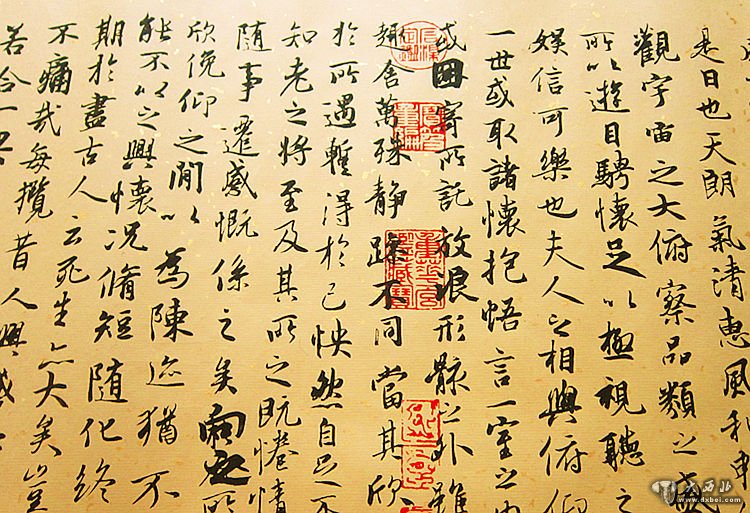 是日也天朗氣清惠風和
觀宇宙之大俯察品類之盛
所以遊目騁懷足以極視聽之
娛信可樂也夫人之相與俯仰
一世或取諸懷抱悟言一室之內
或因寄所託放浪形骸之外雖
趣舍萬殊靜躁不同當其欣
於所遇暫得於己怏然自足不
知老之將至及其所之既惓情
隨事遷感慨係之矣向之所
欣俛仰之閒以為陳迹猶不
能不以之興懷況脩短隨化終
期於盡古人云死生亦大矣豈
不痛哉每攬昔人興感
若合一